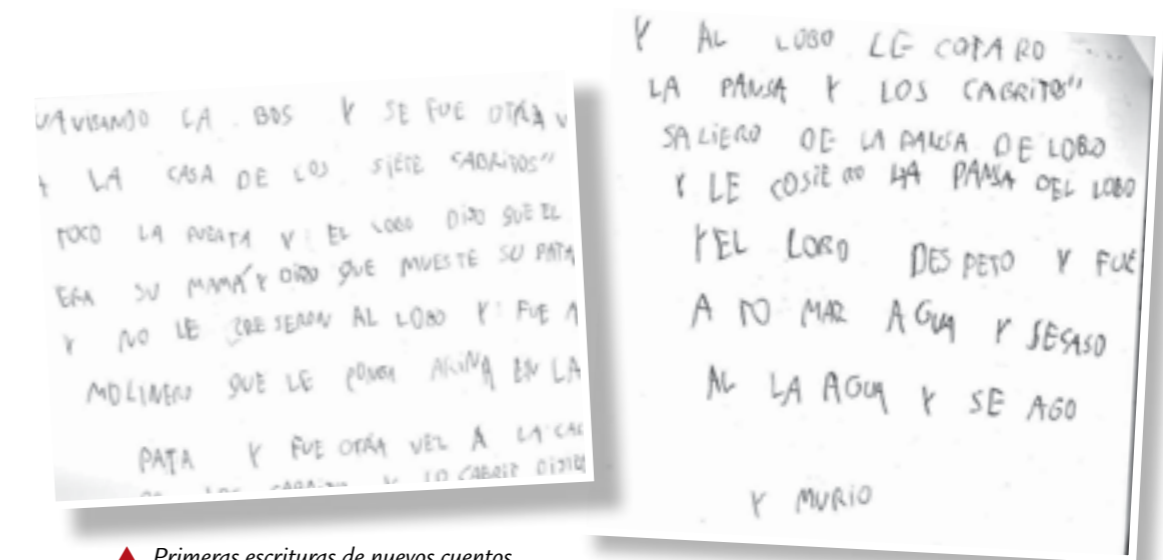 LA BOS Y SE FUE OTRA
LA CASA DE LOS SIETE CABRITOS"
TOCO LA PUERTA Y EL LOBO DIJO QUE EL
ERA SU MAMÁ Y DIJO QUE MUESTE SU PATA
Y NO LE AL LOBO Y FUE A
MOLINERO QUE LE PONGA ARINA EN LA
PATA Y FUE OTRA VEZ A LA
Y AL LOBO LE COTARO ....
LA PANSA Y LOS CABRITOS"
SALIERO DE LA PANSA DE LOBO
Y LE COSIERO LA PANSA DEL LOBO
Y EL LOBO DESPETO Y FUE
A TO MAR AGUA Y SECASO
AL LA AGUA Y SE AGO
Y MURIO
Primeras escrituras de nuevos cuentos